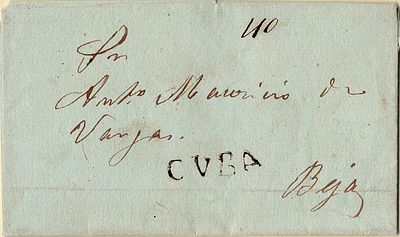 40
Sr
Anto. Mauricio de
Vargas.
CVBA
Beja